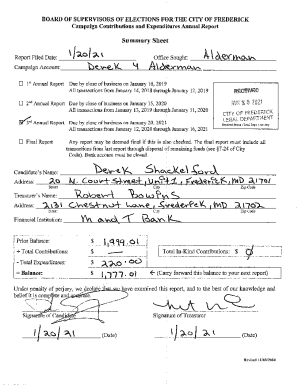 BOARD OF SUPERVISORS OF ELECTIONS FOR THE CITY OF FREDERICK
Campaign Contributions and Expenditures Annual Report
Summary Sheet
Report Filed Date: 1/20/21 Office Sought: Alderman
Campaign Account: Derek 4 Alderman
☐ 1st Annual Report Due by close of business on January 16, 2019
All transactions from January 14, 2018 through January 13, 2019
☐ 2nd Annual Report Due by close of business on January 15, 2020
All transactions from January 13, 2019 through January 11, 2020
☑ 3rd Annual Report Due by close of business on January 20, 2021
All transactions from January 12, 2020 through January 16, 2021
☐ Final Report Any report may be deemed final if this is also checked. The final report must include all
transactions from last report through disposal of remaining funds (see §7-24 of City
Code). Bank account must be closed.
RECEIVED
2021
CITY OF FREDERICK
LEGAL DEPARTMENT
Candidate's Name: Derek Shackelford
Address: 20 N. Court Street, Unit 1, Frederick, MD 21701
Street City Zip Code
Treasurer's Name: Robert Bowens
Address: 2131 Chestnut Lane, Frederick, MD 21702
Street City Zip Code
Financial Institution: M and T Bank
Prior Balance: $ 1,999.01
+ Total Contributions: $
- Total Expenditures: $ 220.00
= Balance: $ 1,777.01
Total In-Kind Contributions: $ 0
← (Carry forward this balance to your next report)
Under penalty of perjury, we declare that we have examined this report, and to the best of our knowledge and
belief it is complete and accurate.
Signature of Candidate Signature of Treasurer
1/20/21 (Date) 1/20/21 (Date)